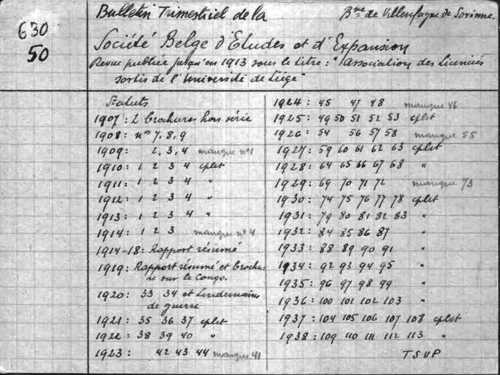 630
50
Bulletin Trimestriel de la
Bne de Villenfagne de Sorinnes
Société Belge d'Etudes et d'Expansion
Revue publiée jusqu'en 1913 sous le titre: "Association des Licenciés
sortis de l'Université de Liége"
Statuts
1907: 2 brochures hors série
1908: nos 7, 8, 9
1909: 2, 3, 4 manque n°1
1910: 1 2 3 4 cplet
1911: 1 2 3 4 "
1912: 1 2 3 4 "
1913: 1 2 3 4 "
1914: 1 2 3 manque n° 4
1914-18: Rapport résumé
1919: Rapport résumé et Brochu
re sur le Congo.
1920: 33 34 et Lendemains
de guerre
1921: 35 36 37 cplet
1922: 38 39 40 "
1923: 42 43 44 manque 41
1924: 45 47 48 manque 46
1925: 49 50 51 52 53 cplet
1926: 54 56 57 58 manque 55
1927: 59 60 61 62 63 cplet
1928: 64 65 66 67 68 "
1929: 69 70 71 72 manque 73
1930: 74 75 76 77 78 cplet
1931: 79 80 81 82 83 "
1932: 84 85 86 87 "
1933: 88 89 90 91 "
1934: 92 93 94 95 "
1935: 96 97 98 99 "
1936: 100 101 102 103 "
1937: 104 105 106 107 108 cplet
1938: 109 110 111 112 113 "
T.S.V.P